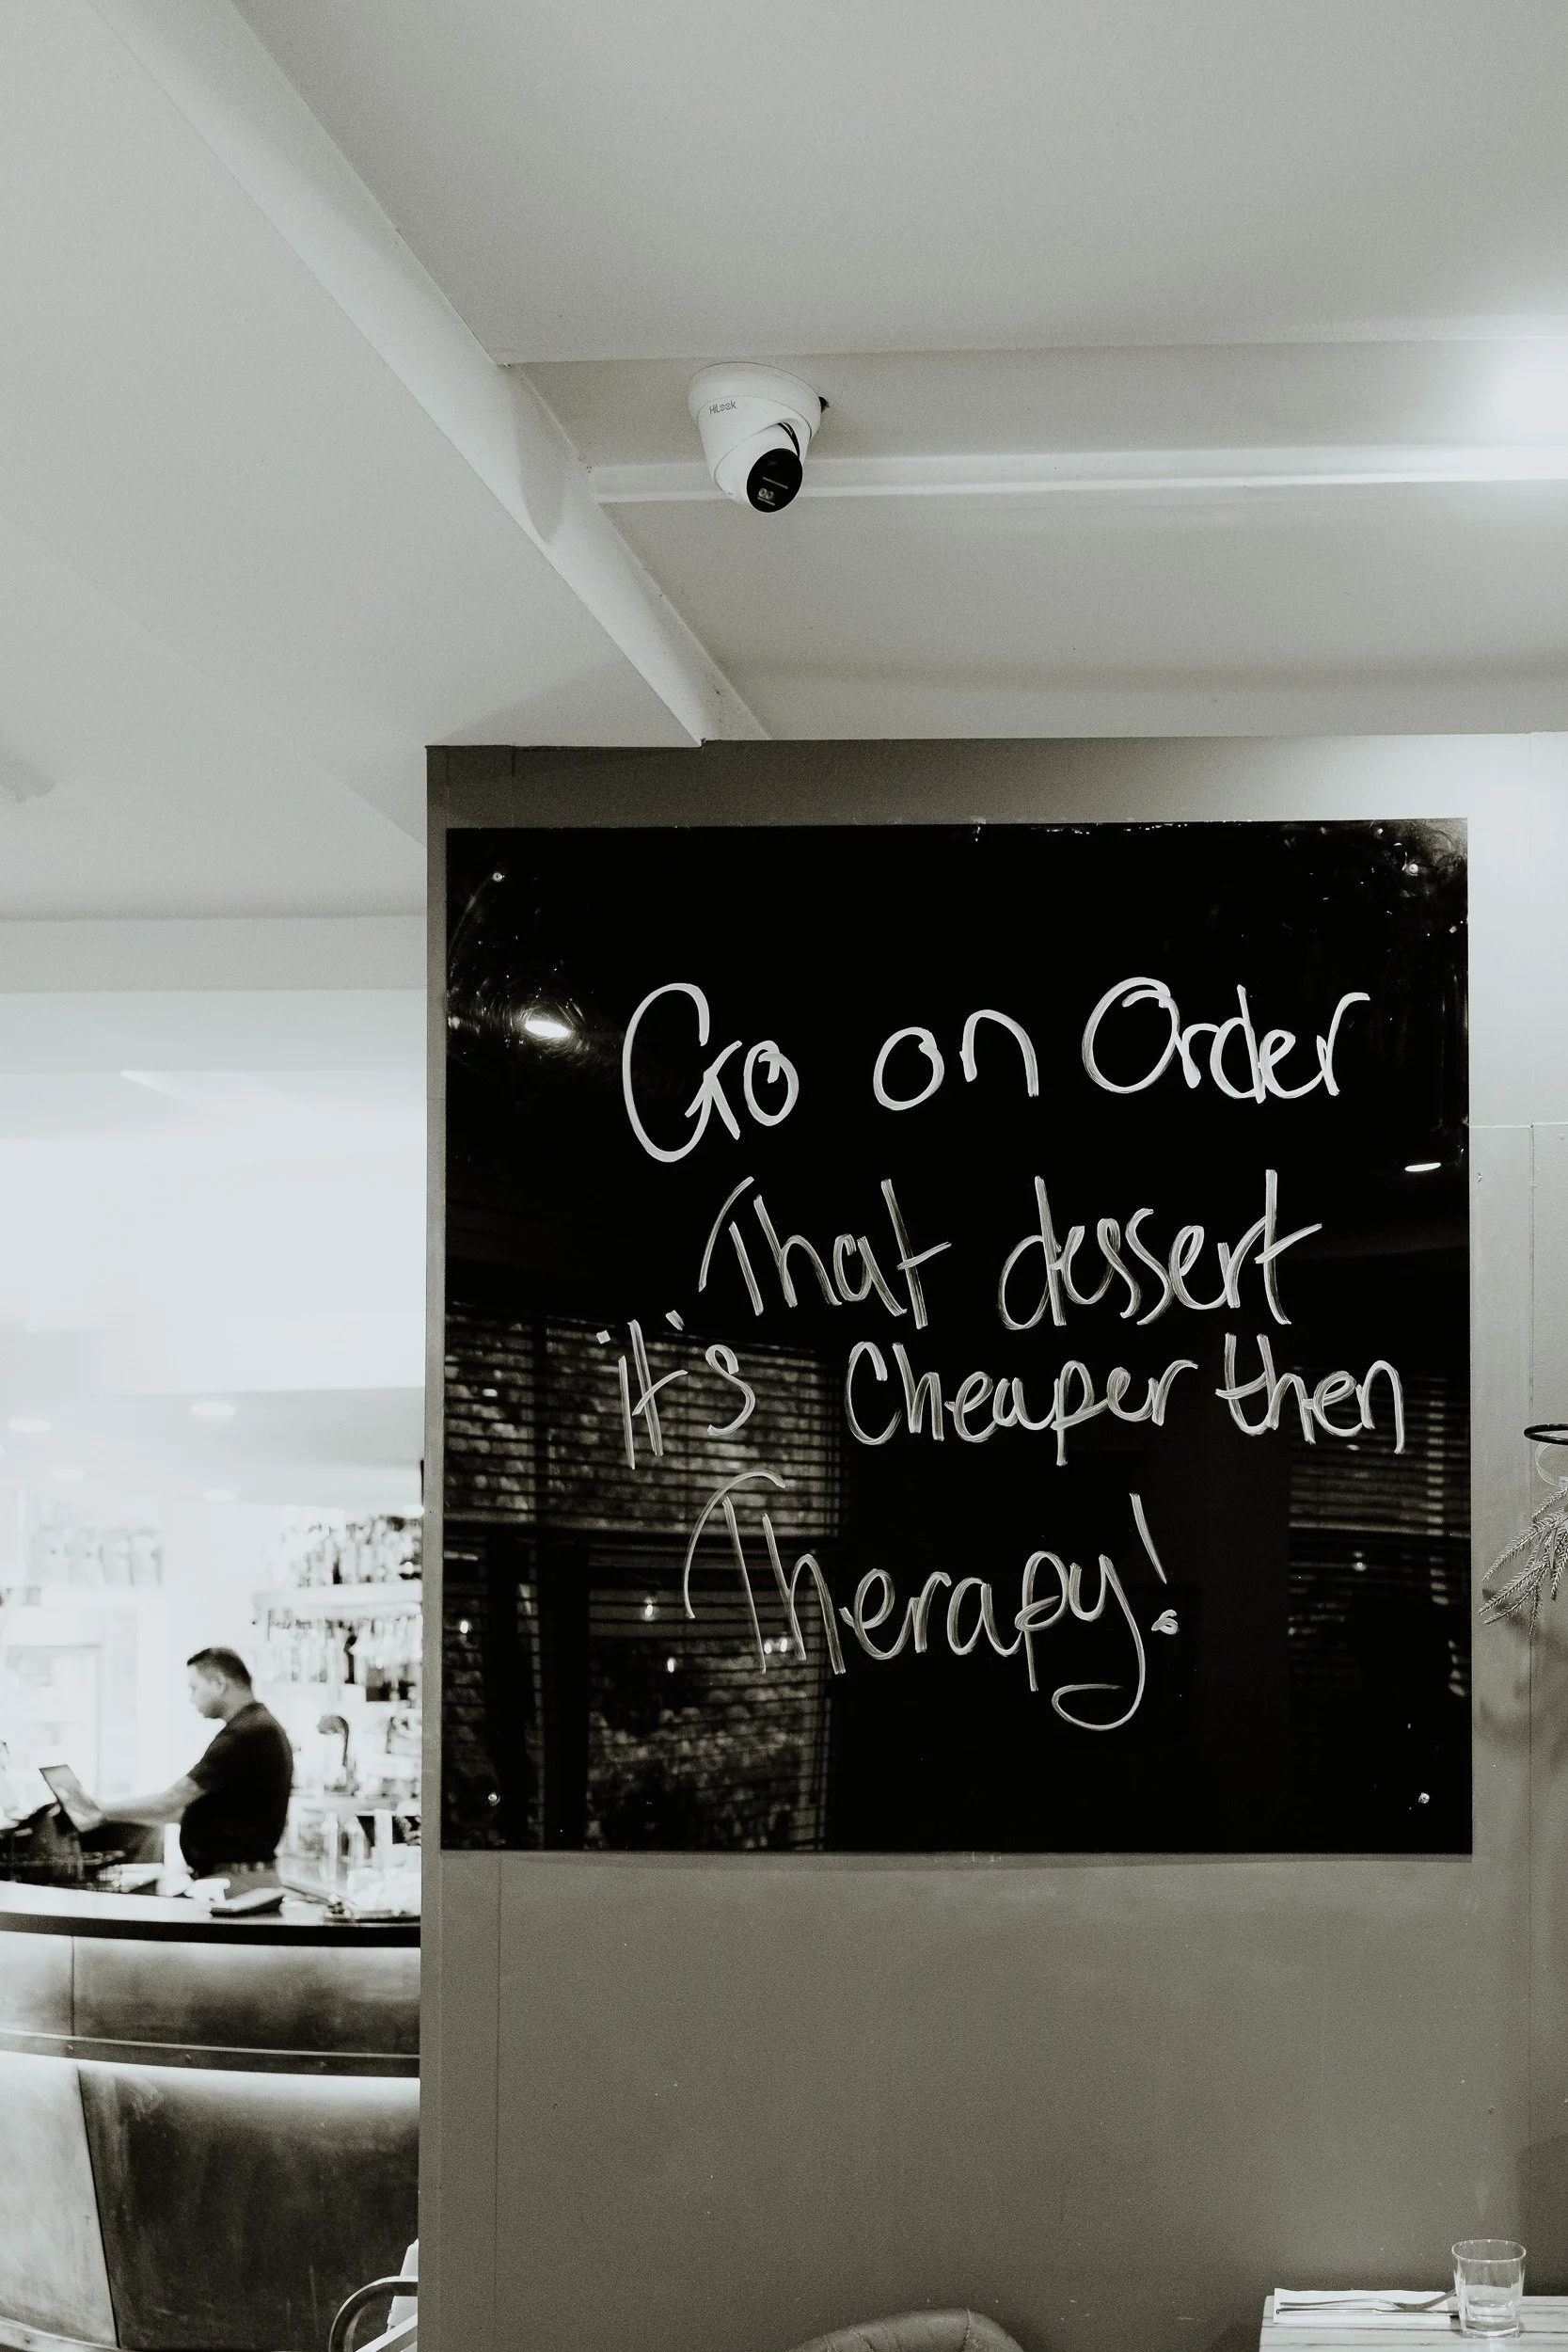 HiLook
Go on Order
That dessert
it's Cheaper then
Therapy!